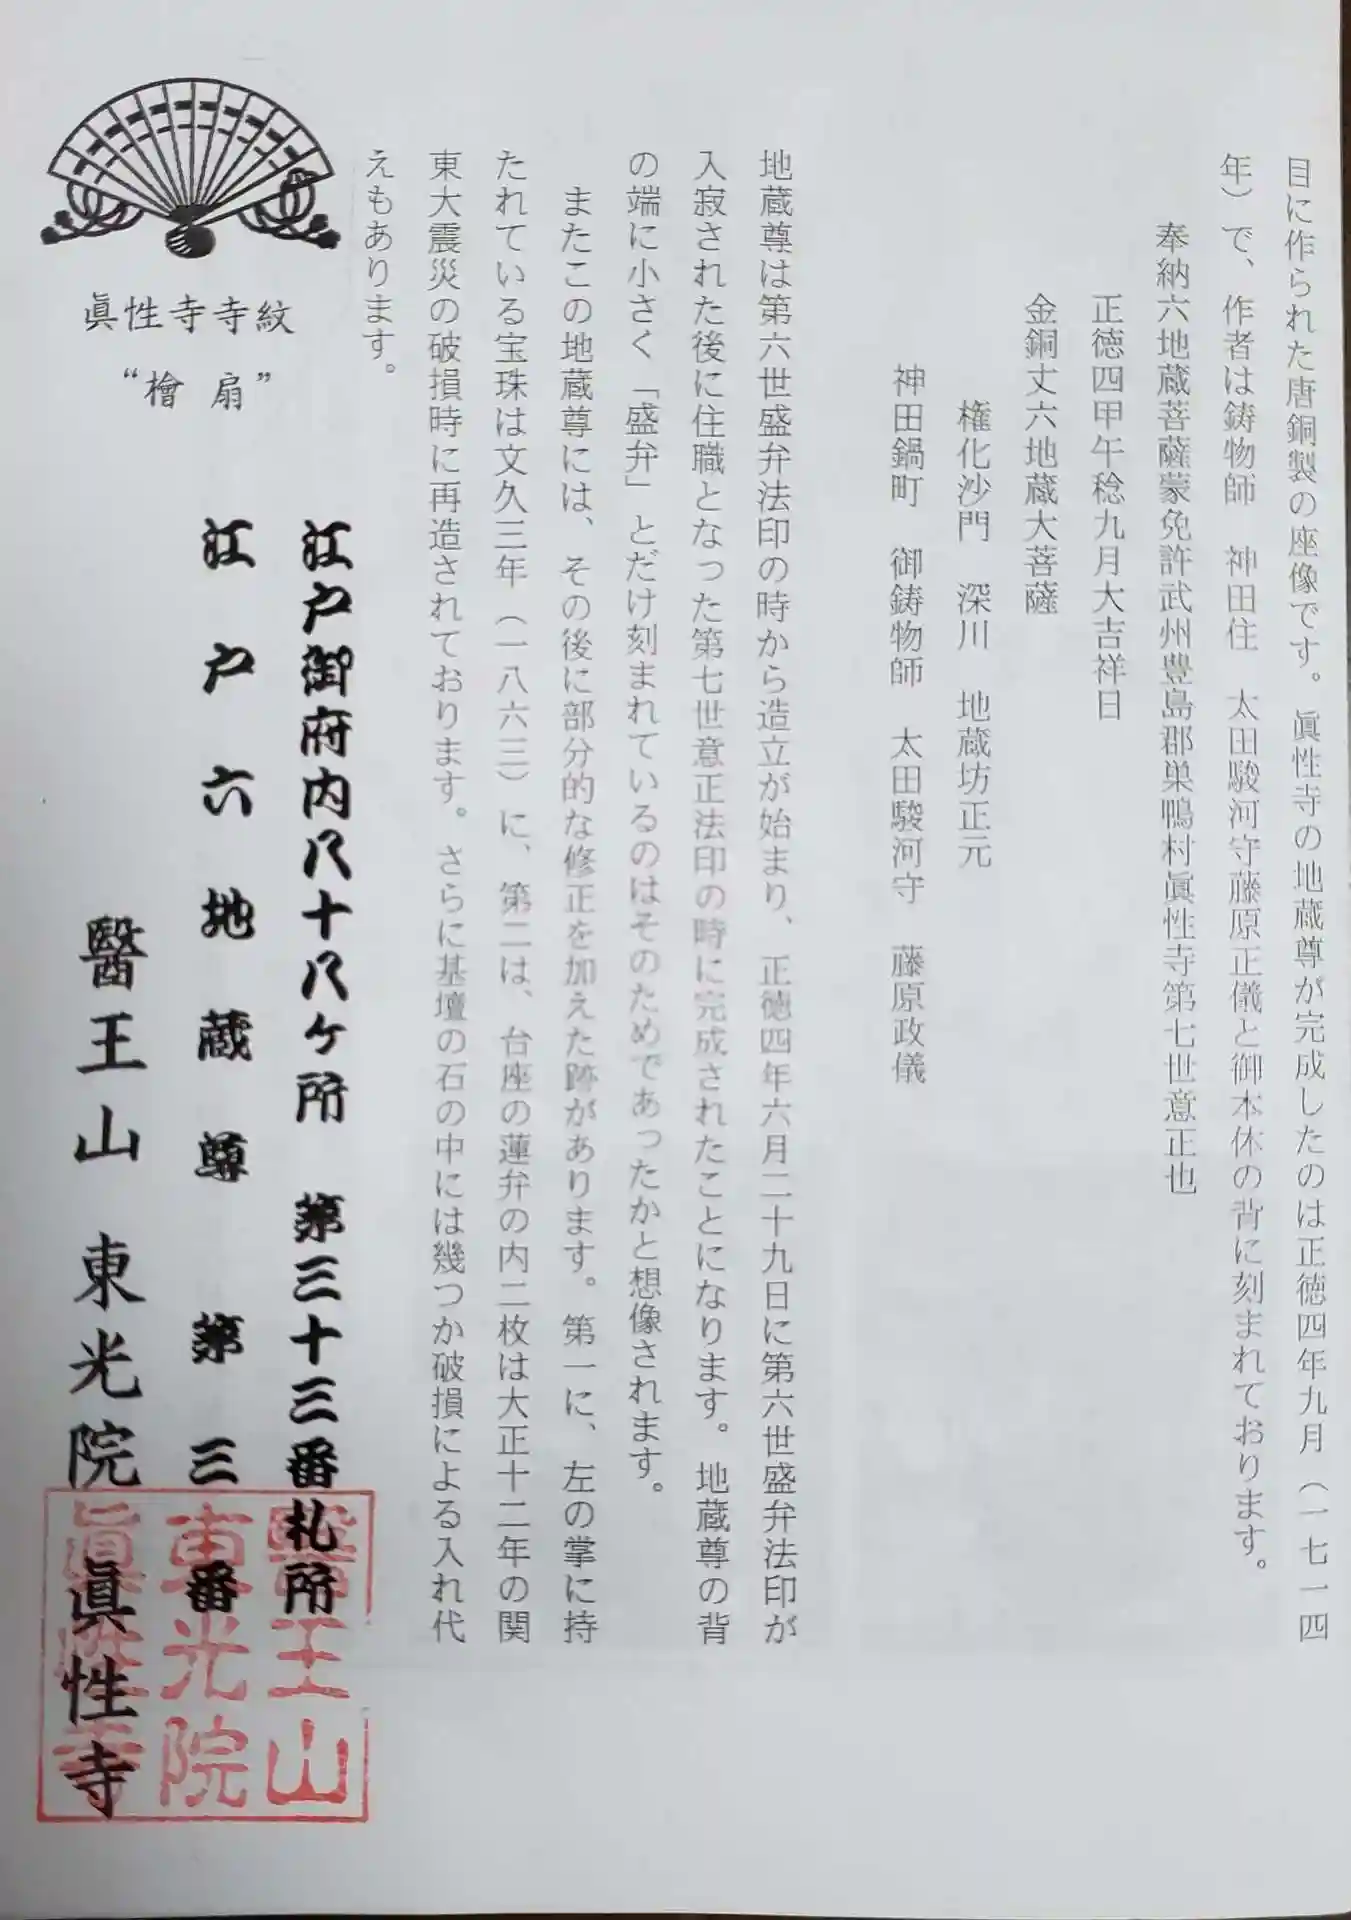 目に作られた唐銅製の座像です。眞性寺の地蔵尊が完成したのは正徳四年九月（一七一四
年）で、作者は鋳物師　神田住　太田駿河守藤原正儀と御本体の背に刻まれております。
奉納六地蔵菩薩蒙免許武州豊島郡巣鴨村眞性寺第七世意正也
正徳四甲午稔九月大吉祥日
金銅丈六地蔵大菩薩
権化沙門　深川　地蔵坊正元
神田鍋町　御鋳物師　太田駿河守　藤原政儀
地蔵尊は第六世盛弁法印の時から造立が始まり、正徳四年六月二十九日に第六世盛弁法印が
入寂された後に住職となった第七世意正法印の時に完成されたことになります。地蔵尊の背
の端に小さく「盛弁」とだけ刻まれているのはそのためであったかと想像されます。
またこの地蔵尊には、その後に部分的な修正を加えた跡があります。第一に、左の掌に持
たれている宝珠は文久三年（一八六三）に、第二は、台座の蓮弁の内二枚は大正十二年の関
東大震災の破損時に再造されております。さらに基壇の石の中には幾つか破損による入れ代
えもあります。
眞性寺寺紋
“檜扇”
江戸御府内八十八ヶ所　第三十三番札所
江戸六地蔵尊　第三番
醫王山　東光院　眞性寺
醫王山
東光院
眞性寺